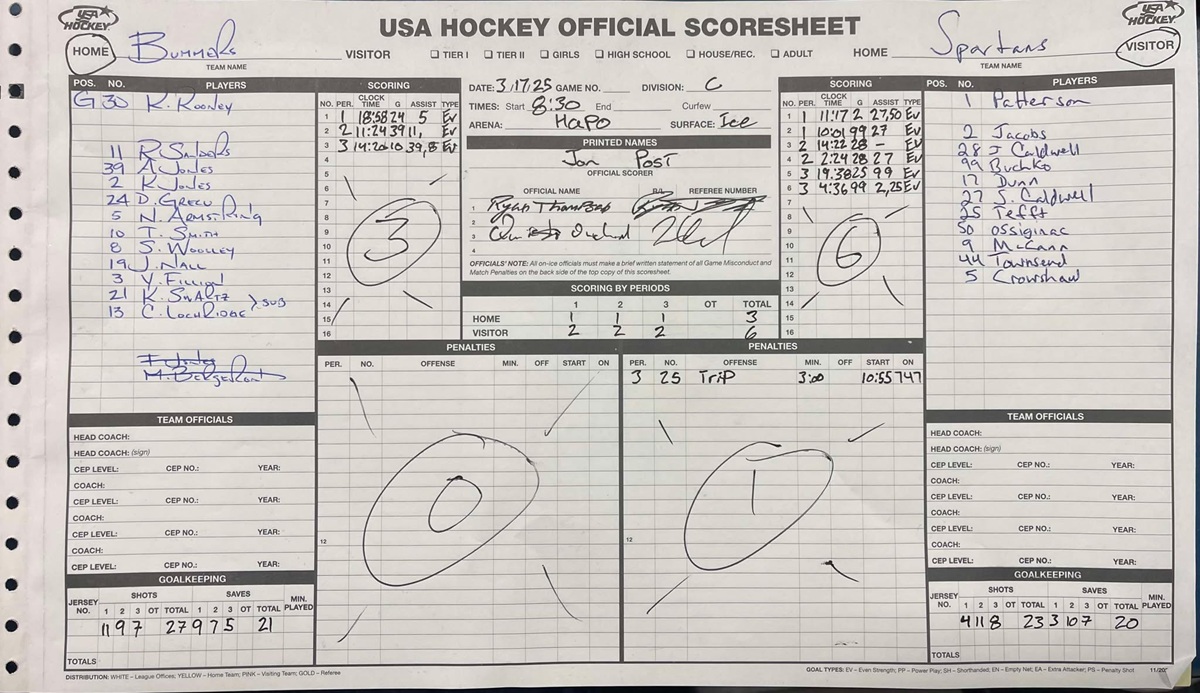 USA HOCKEY OFFICIAL SCORESHEET
USA HOCKEY
HOME Bummers
TEAM NAME
VISITOR ☐ TIER I ☐ TIER II ☐ GIRLS ☐ HIGH SCHOOL ☐ HOUSE/REC. ☐ ADULT HOME
Spartans VISITOR
TEAM NAME
USA HOCKEY
POS. NO. PLAYERS
G 30 K. Rooney
11 R. Sanders
39 A. Jones
2 K. Jones
24 D. Greco
5 N. Armstring
10 T. Smith
8 S. Woolley
19 J. Nall
3 V. Fillion
21 K. Swartz
13 C. Lochridge > SUB
M. Bergeront
SCORING
NO. PER. CLOCK TIME G ASSIST TYPE
1 1 18:58 24 5 Ev
2 2 11:24 39 11, Ev
3 3 14:20 10 39, 8 Ev
4
5
6
7
8
9
10
11
12
13
14
15
16
3
DATE: 3/17/25 GAME NO. DIVISION: C
TIMES: Start 8:30 End Curfew
ARENA: HAPO SURFACE: Ice
PRINTED NAMES
Jon Post
OFFICIAL SCORER
OFFICIAL NAME REFEREE NUMBER
1 Ryan Thompson
2
3
4
OFFICIALS' NOTE: All on-ice officials must make a brief written statement of all Game Misconduct and
Match Penalties on the back side of the top copy of this scoresheet.
SCORING BY PERIODS
1 2 3 OT TOTAL
HOME 1 1 1 3
VISITOR 2 2 2 6
SCORING
NO. PER. CLOCK TIME G ASSIST TYPE
1 1 11:17 2 27,50 Ev
2 1 10:01 99 27 Ev
3 2 14:22 28 - Ev
4 2 2:24 28 27 Ev
5 3 19.38 25 99 Ev
6 3 4:36 99 2,25 Ev
7
8
9
10
11
12
13
14
15
16
6
POS. NO. PLAYERS
1 Patterson
2 Jacobs
28 J Caldwell
99 Buchko
17 Dunn
27 S. Caldwell
25 Tefft
50 Ossiginac
9 McCann
44 Townsend
5 Crowshaw
PENALTIES
PER. NO. OFFENSE MIN. OFF START ON
12
0
PENALTIES
PER. NO. OFFENSE MIN. OFF START ON
3 25 Trip 3:00 10:55 747
12
1
TEAM OFFICIALS
HEAD COACH:
HEAD COACH: (sign)
CEP LEVEL: CEP NO.: YEAR:
COACH:
CEP LEVEL: CEP NO.: YEAR:
COACH:
CEP LEVEL: CEP NO.: YEAR:
COACH:
CEP LEVEL: CEP NO.: YEAR:
GOALKEEPING
JERSEY NO. SHOTS SAVES MIN. PLAYED
1 2 3 OT TOTAL 1 2 3 OT TOTAL
11 9 7 27 9 7 5 21
TOTALS
TEAM OFFICIALS
HEAD COACH:
HEAD COACH: (sign)
CEP LEVEL: CEP NO.: YEAR:
COACH:
CEP LEVEL: CEP NO.: YEAR:
COACH:
CEP LEVEL: CEP NO.: YEAR:
COACH:
CEP LEVEL: CEP NO.: YEAR:
GOALKEEPING
JERSEY NO. SHOTS SAVES MIN. PLAYED
1 2 3 OT TOTAL 1 2 3 OT TOTAL
4 11 8 23 3 10 7 20
TOTALS
DISTRIBUTION: WHITE – League Offices; YELLOW – Home Team; PINK – Visiting Team; GOLD – Referee
GOAL TYPES: EV – Even Strength; PP – Power Play; SH – Shorthanded; EN – Empty Net; EA – Extra Attacker; PS – Penalty Shot